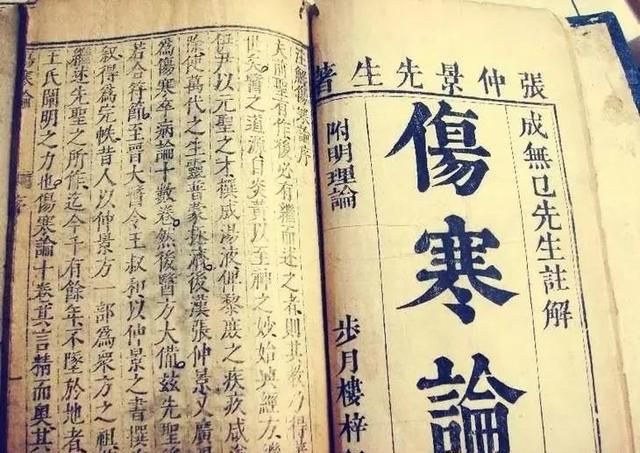 張仲景先生著
成無已先生註解
傷寒論
附明理論
步月樓梓
註解傷寒論序
夫前聖有作後必有繼而述之者則其教乃得著
世矣醫之道源自炎黃以至神之妙始興經方繼
伊尹以元聖之才撰成湯液俾黎庶之疾疚咸遂
除使萬代之生靈普蒙拯濟後漢張仲景又廣
為傷寒卒病論十數卷然後醫方大備茲先聖後
若合符節至晉太醫令王叔和以仲景之書撰
叙得為完帙昔人以仲景方一部為眾方之祖
繼述先聖之所作迄今千有餘年不墜於地者
王氏闡明之力也傷寒論十卷其言精而奧其
傷寒論 序